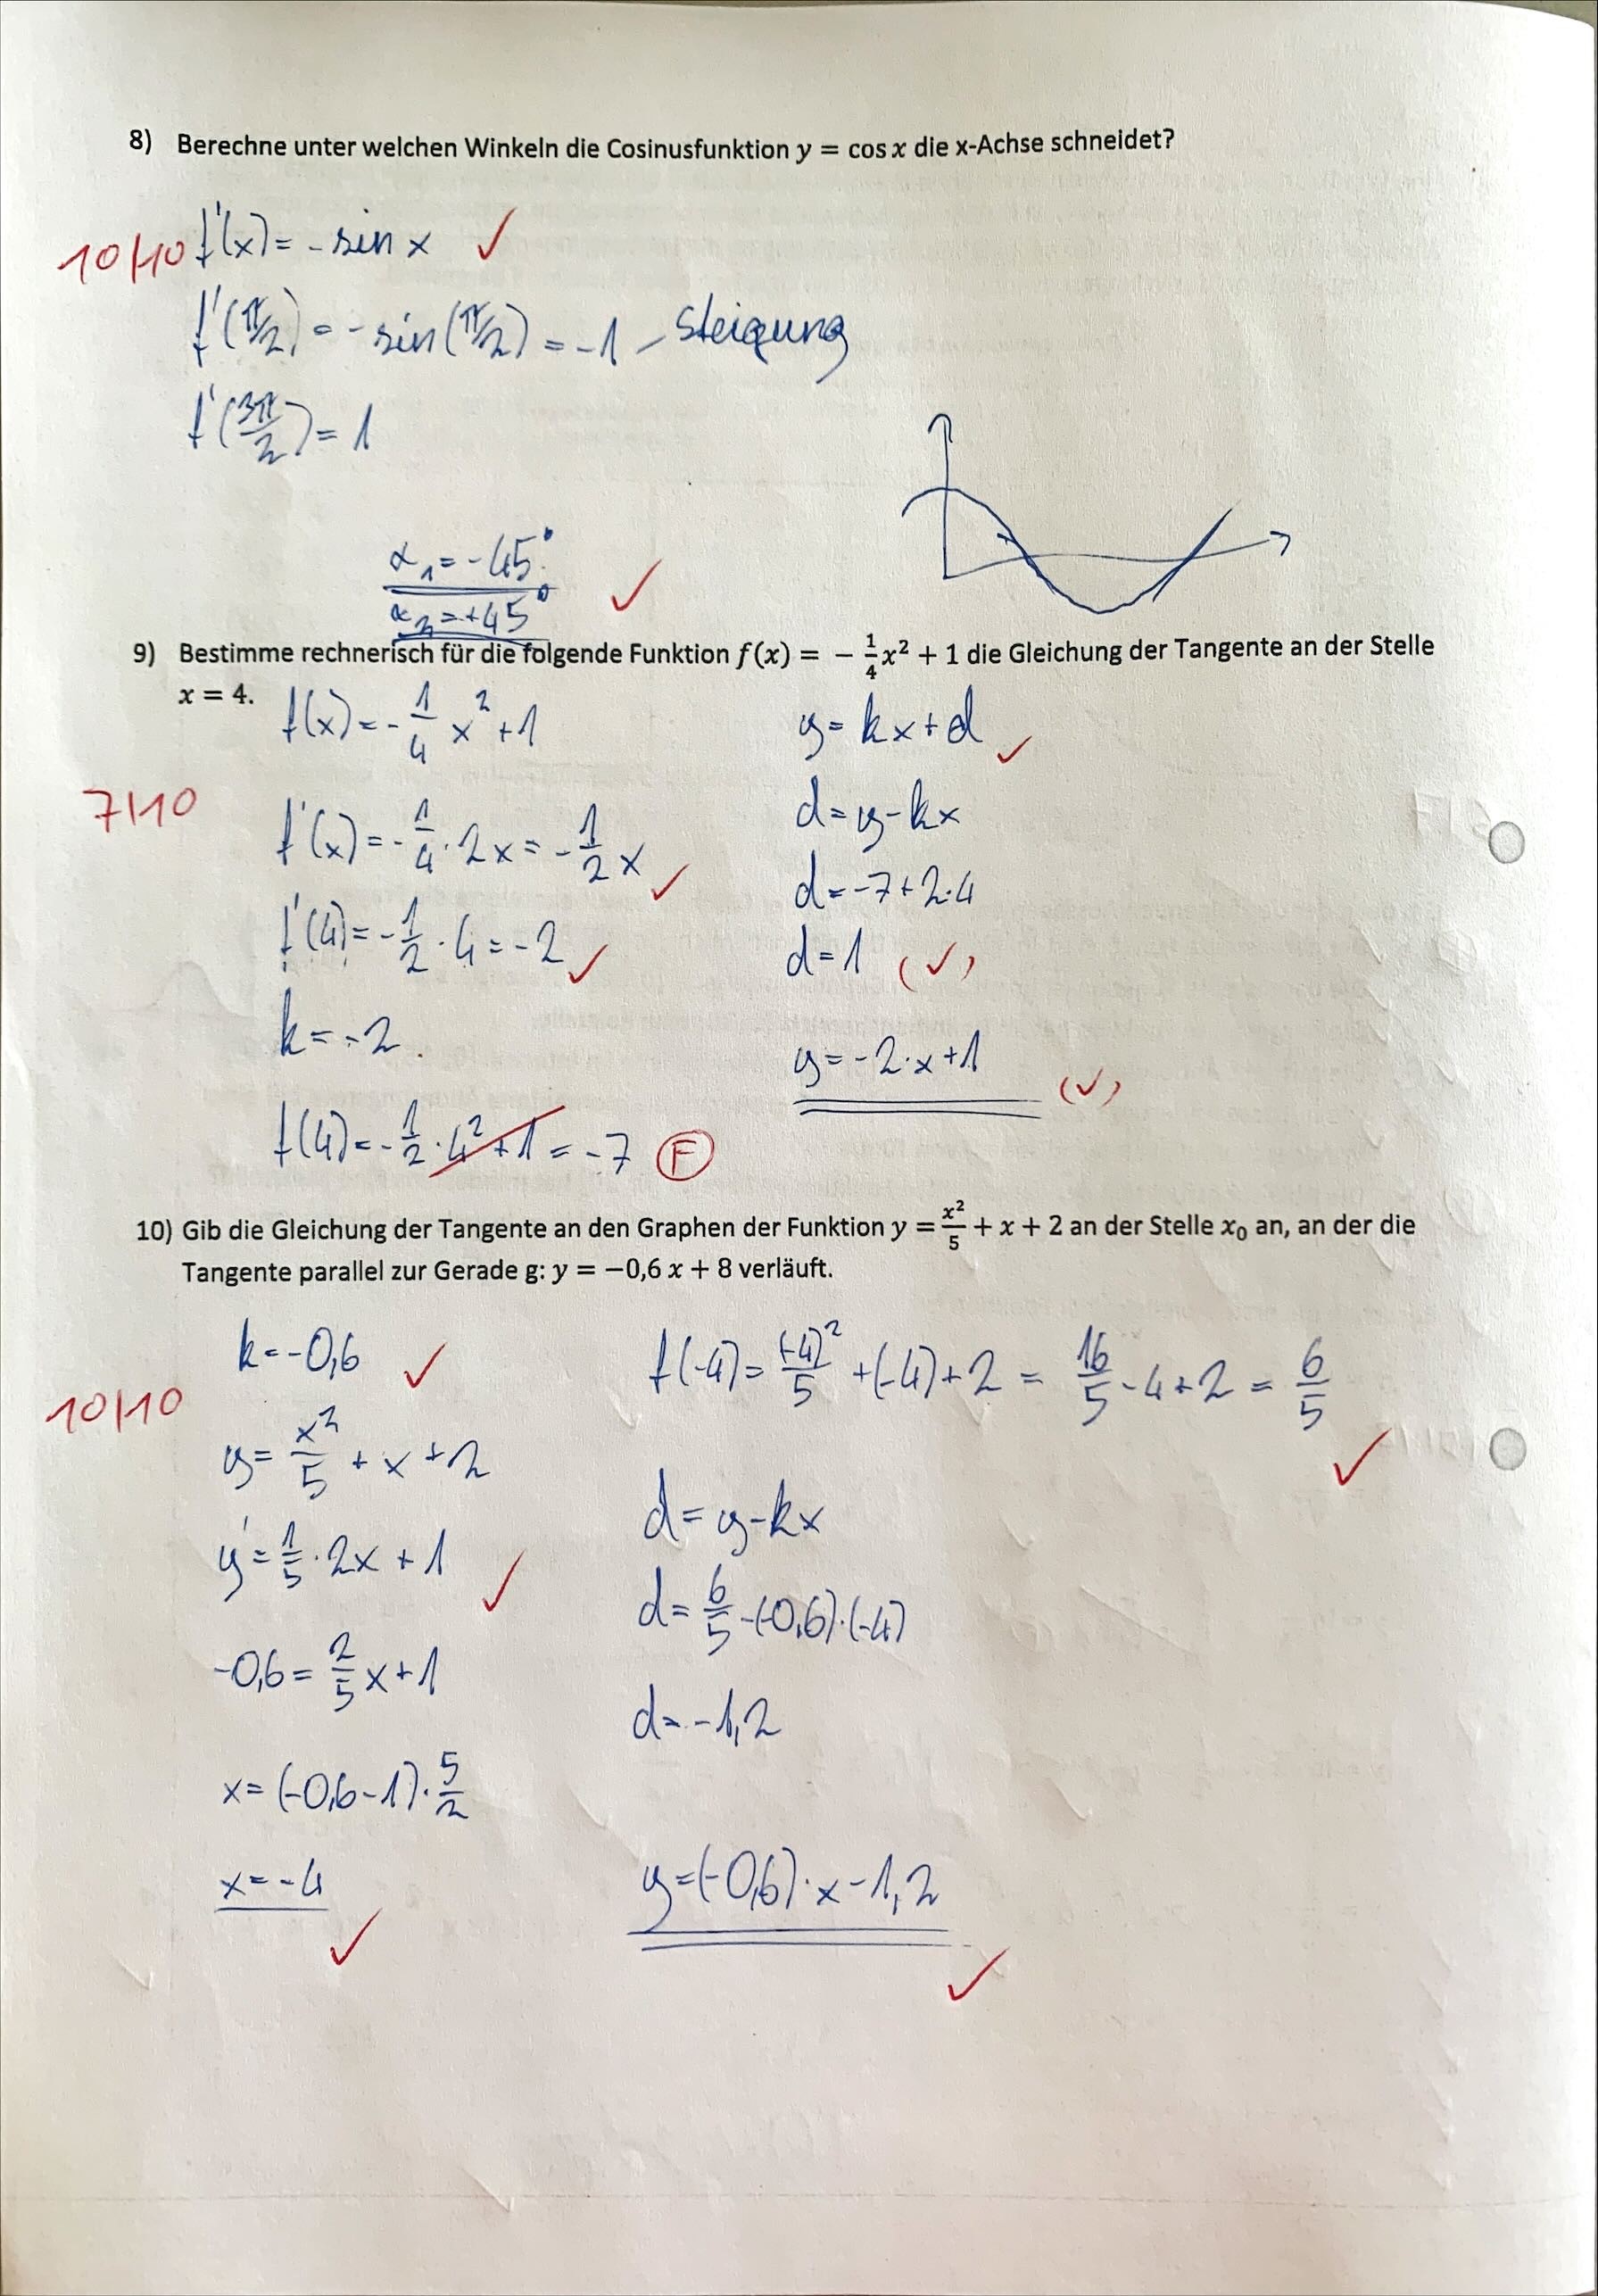 8) Berechne unter welchen Winkeln die Cosinusfunktion y = cos x die x-Achse schneidet?
10/10 f'(x) = - sin x ✓
f'(π/2) = - sin(π/2) = -1 - Steigung
f'(3π/2) = 1
α₁ = -45°
α₂ = +45° ✓
9) Bestimme rechnerisch für die folgende Funktion f(x) = − 1/4 x² + 1 die Gleichung der Tangente an der Stelle
x = 4.
f(x) = - 1/4 x² + 1
7/10 f'(x) = - 1/4 · 2x = - 1/2 x ✓
f'(4) = - 1/2 · 4 = -2 ✓
k = -2
f(4) = - 1/2 · 4² + 1 = -7 F
y = kx + d ✓
d = y - kx
d = -7 + 2·4
d = 1 (✓)
y = -2·x + 1 (✓)
10) Gib die Gleichung der Tangente an den Graphen der Funktion y = x²/5 + x + 2 an der Stelle x₀ an, an der die
Tangente parallel zur Gerade g: y = −0,6 x + 8 verläuft.
k = -0,6 ✓
10/10
y = x²/5 + x + 2
y' = 1/5 · 2x + 1 ✓
-0,6 = 2/5 x + 1
x = (-0,6 - 1) · 5/2
x = -4 ✓
f(-4) = (-4)²/5 + (-4) + 2 = 16/5 - 4 + 2 = 6/5 ✓
d = y - kx
d = 6/5 - (-0,6) · (-4)
d = -1,2
y = (-0,6) · x - 1,2 ✓